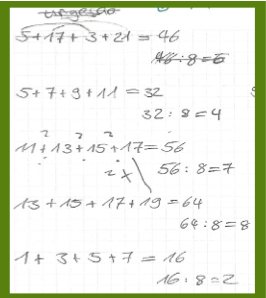 5+17+3+21 = 46
46:8=6
5+7+9+11 = 32
32 : 8 = 4
2 2 2
11+13+15+17=56
2x
56 : 8 = 7
13 + 15 + 17 + 19 = 64
64 : 8 = 8
1 + 3 + 5 + 7 = 16
16 : 8 = 2